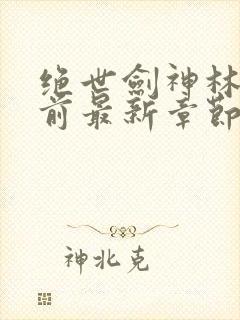 绝世劍神林
前最新章節
神北克